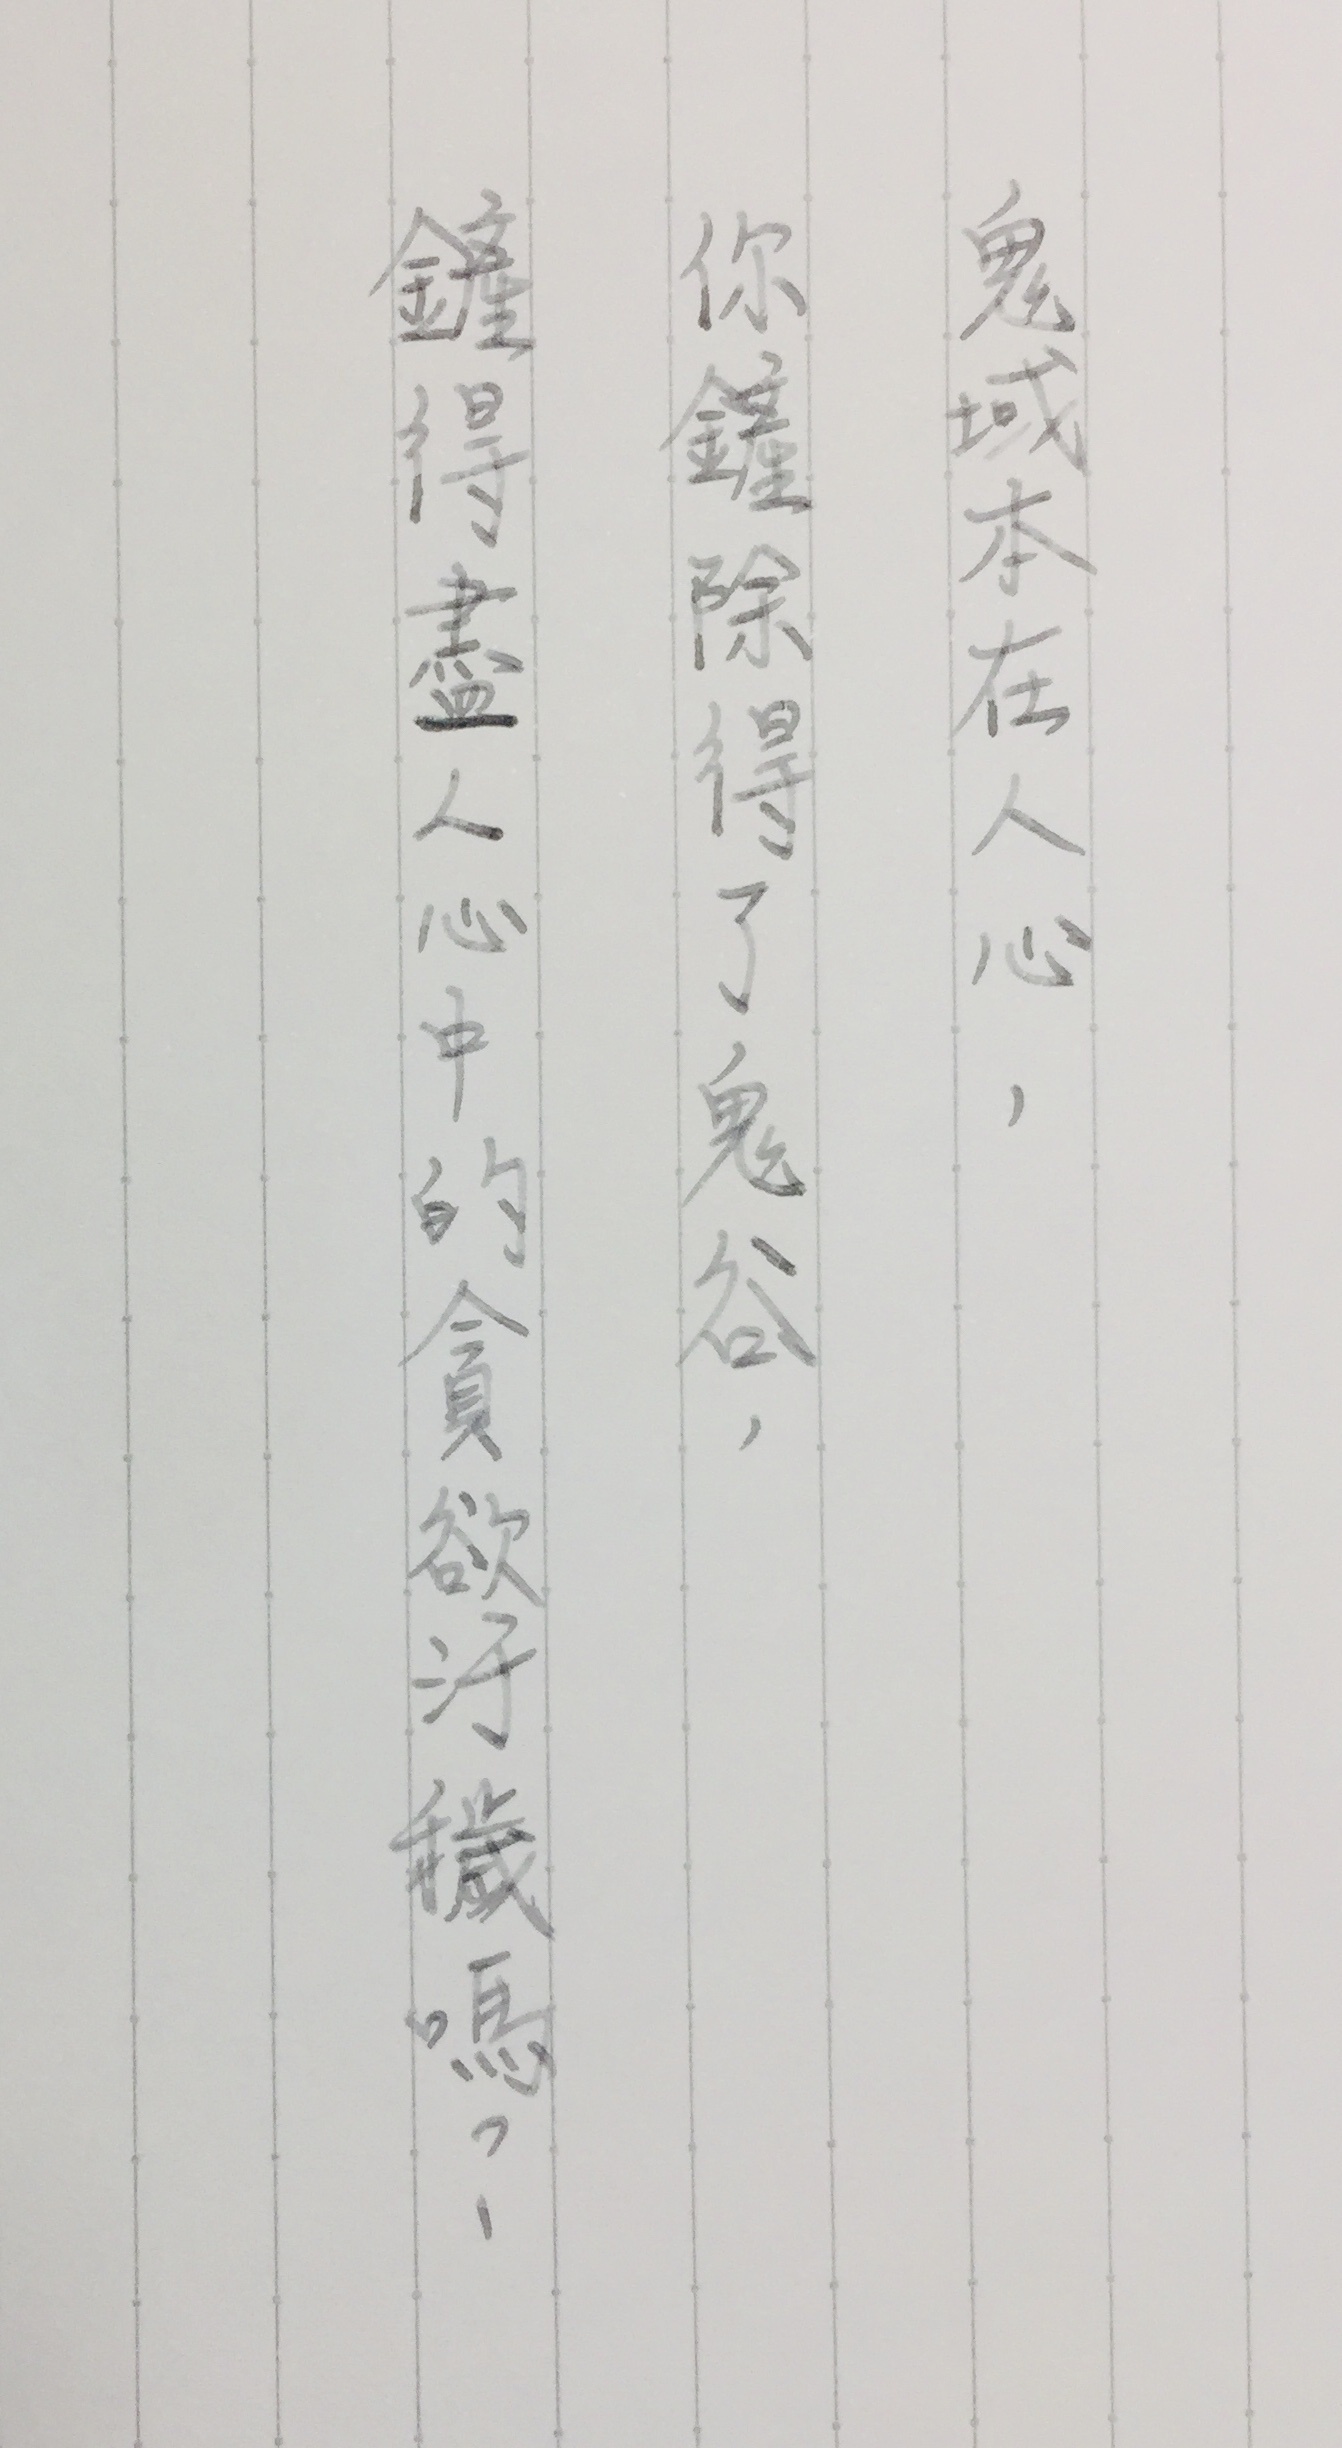 鬼域本在人心，
你鏟除得了鬼谷，
鏟得盡人心中的貪欲汙穢嗎？